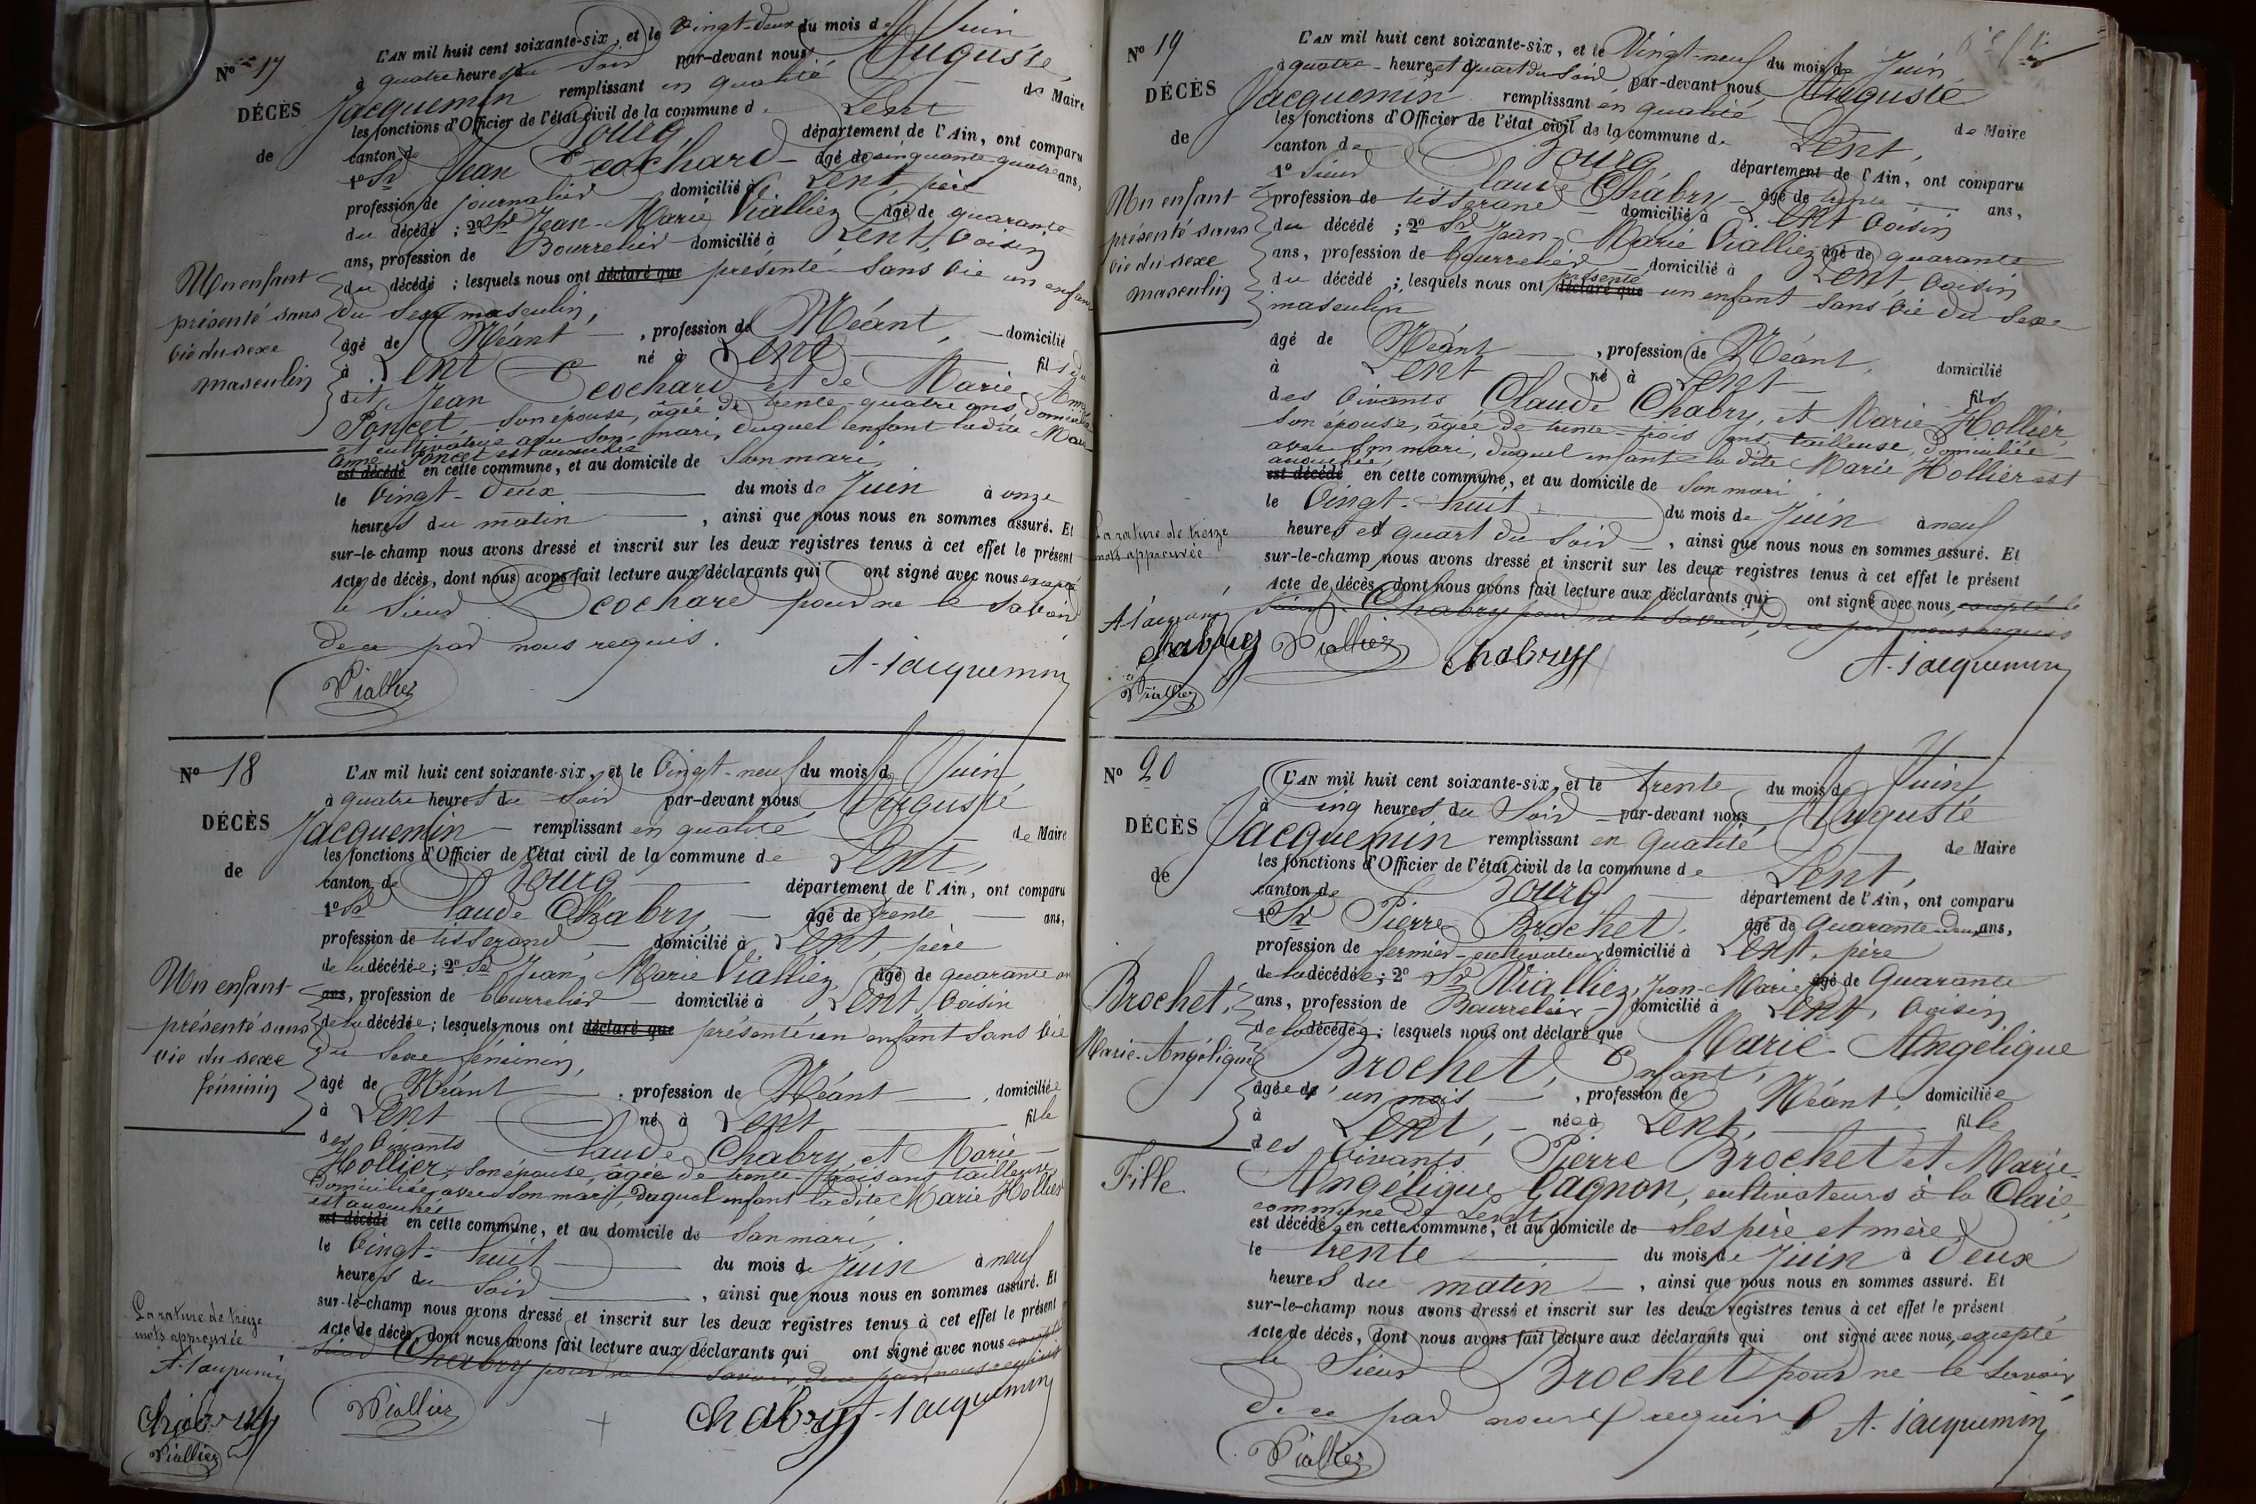 N° 17
DÉCÈS
de
Un enfant
présenté sans
vie du sexe
masculin
L'AN mil huit cent soixante-six, et le vingt-deux du mois de Juin
à quatre heures du Soir par-devant nous Auguste
Jacquemin remplissant en qualité de Maire
les fonctions d'Officier de l'état civil de la commune de Lent
canton de Bourg département de l'Ain, ont comparu
1° Sr Jean Cochard âgé de cinquante-quatre ans,
profession de journalier domicilié à Lent, père
du décédé ; 2° Sr Jean-Marie Vialliez âgé de quarante
ans, profession de Bourrelier domicilié à Lent, voisin
du décédé ; lesquels nous ont déclaré que présenté sans vie un enfant
du Sexe masculin,
âgé de Néant, profession de Néant, domicilié
à Lent né à Lent fils du
dit Jean Cochard et de Marie Anne
Poncet, son épouse, âgée de trente-quatre ans, domiciliée
et cultivatrice avec son mari, duquel enfant ladite Marie
Anne Poncet est accouchée
est décédé en cette commune, et au domicile de son mari,
le vingt-deux du mois de Juin à onze
heures du matin, ainsi que nous nous en sommes assuré. Et
sur-le-champ nous avons dressé et inscrit sur les deux registres tenus à cet effet le présent
Acte de décès, dont nous avons fait lecture aux déclarants qui ont signé avec nous excepté
le Sieur Cochard pour ne le savoir
de ce par nous requis.
Viallier A. Jacquemin
N° 18
DÉCÈS
de
Un enfant
présenté sans
vie du sexe
féminin
L'AN mil huit cent soixante-six, et le vingt-neuf du mois de Juin
à quatre heures du Soir par-devant nous Auguste
Jacquemin remplissant en qualité de Maire
les fonctions d'Officier de l'état civil de la commune de Lent,
canton de Bourg département de l'Ain, ont comparu
1° Sr Claude Chabry, âgé de trente ans,
profession de tisserand, domicilié à Lent, père
de la décédée ; 2° Sr Jean Marie Vialliez, âgé de quarante an
ans, profession de bourrelier domicilié à Lent, voisin
de la décédée ; lesquels nous ont déclaré que présenté un enfant sans vie
du Sexe féminin,
âgé de Néant, profession de Néant, domiciliée
à Lent né à Lent fille
des vivants Claude Chabry et Marie
Hollier, son épouse, âgée de trente-trois ans tailleuse,
domiciliée avec son mari, duquel enfant la dite Marie Hollier
est accouchée
est décédé en cette commune, et au domicile de son mari,
le vingt-huit du mois de Juin à neuf
heures du Soir, ainsi que nous nous en sommes assuré. Et
sur-le-champ nous avons dressé et inscrit sur les deux registres tenus à cet effet le présent
Acte de décès, dont nous avons fait lecture aux déclarants qui ont signé avec nous excepté
Sieur Chabry pour ne le savoir, de ce par nous requis
La rature de treize
mots approuvée
A. Jacquemin
Chabry
Viallier
Viallier Chabry A. Jacquemin
N° 19
DÉCÈS
de
Un enfant
présenté sans
vie du sexe
masculin
L'AN mil huit cent soixante-six, et le Vingt-neuf du mois de Juin
à quatre heures et quart du Soir par-devant nous Auguste
Jacquemin remplissant en qualité de Maire
les fonctions d'Officier de l'état civil de la commune de Lent,
canton de Bourg département de l'Ain, ont comparu
1° Sieur Claude Chabry âgé de trente ans,
profession de tisserand domicilié à Lent voisin
du décédé ; 2° Sr Jean-Marie Vialliez âgé de quarante
ans, profession de bourrelier domicilié à Lent, voisin
du décédé ; lesquels nous ont déclaré que présenté un enfant sans vie du Sexe
masculin
âgé de Néant, profession de Néant, domicilié
à Lent né à Lent fils
des vivants Claude Chabry, et Marie Hollier,
son épouse, âgée de trente-trois ans, tailleuse, domiciliée
avec son mari, duquel enfant la dite Marie Hollier est
accouchée
est décédé en cette commune, et au domicile de son mari
le vingt-huit du mois de Juin à neuf
heures et quart du Soir, ainsi que nous nous en sommes assuré. Et
sur-le-champ nous avons dressé et inscrit sur les deux registres tenus à cet effet le présent
Acte de décès, dont nous avons fait lecture aux déclarants qui ont signé avec nous, excepté le
Sieur Chabry pour ne le savoir, de ce par nous requis
La rature de treize
mots approuvée
A. Jacquemin
Chabry
Viallier
Viallier Chabry A. Jacquemin
N° 20
DÉCÈS
de
Brochet,
Marie-Angélique
Fille
L'AN mil huit cent soixante-six, et le trente du mois de Juin
à cinq heures du Soir par-devant nous Auguste
Jacquemin remplissant en qualité de Maire
les fonctions d'Officier de l'état civil de la commune de Lent,
canton de Bourg département de l'Ain, ont comparu
1° Sr Pierre Brochet, âgé de quarante-deux ans,
profession de fermier-cultivateur domicilié à Lent, père
de la décédée ; 2° Sr Vialliez, Jean-Marie âgé de quarante
ans, profession de Bourrelier domicilié à Lent, voisin
de la décédée ; lesquels nous ont déclaré que Marie-Angélique
Brochet, Enfant,
âgée d'un mois, profession de Néant, domiciliée
à Lent, née à Lent, fille
des vivants Pierre Brochet et Marie-
Angélique Gagnon, cultivateurs à la Claie,
commune de Lent
est décédée en cette commune, et au domicile de ses père et mère,
le trente du mois de Juin à deux
heures du matin, ainsi que nous nous en sommes assuré. Et
sur-le-champ nous avons dressé et inscrit sur les deux registres tenus à cet effet le présent
Acte de décès, dont nous avons fait lecture aux déclarants qui ont signé avec nous, excepté
le Sieur Brochet pour ne le savoir
de ce par nous requis A. Jacquemin
Viallier